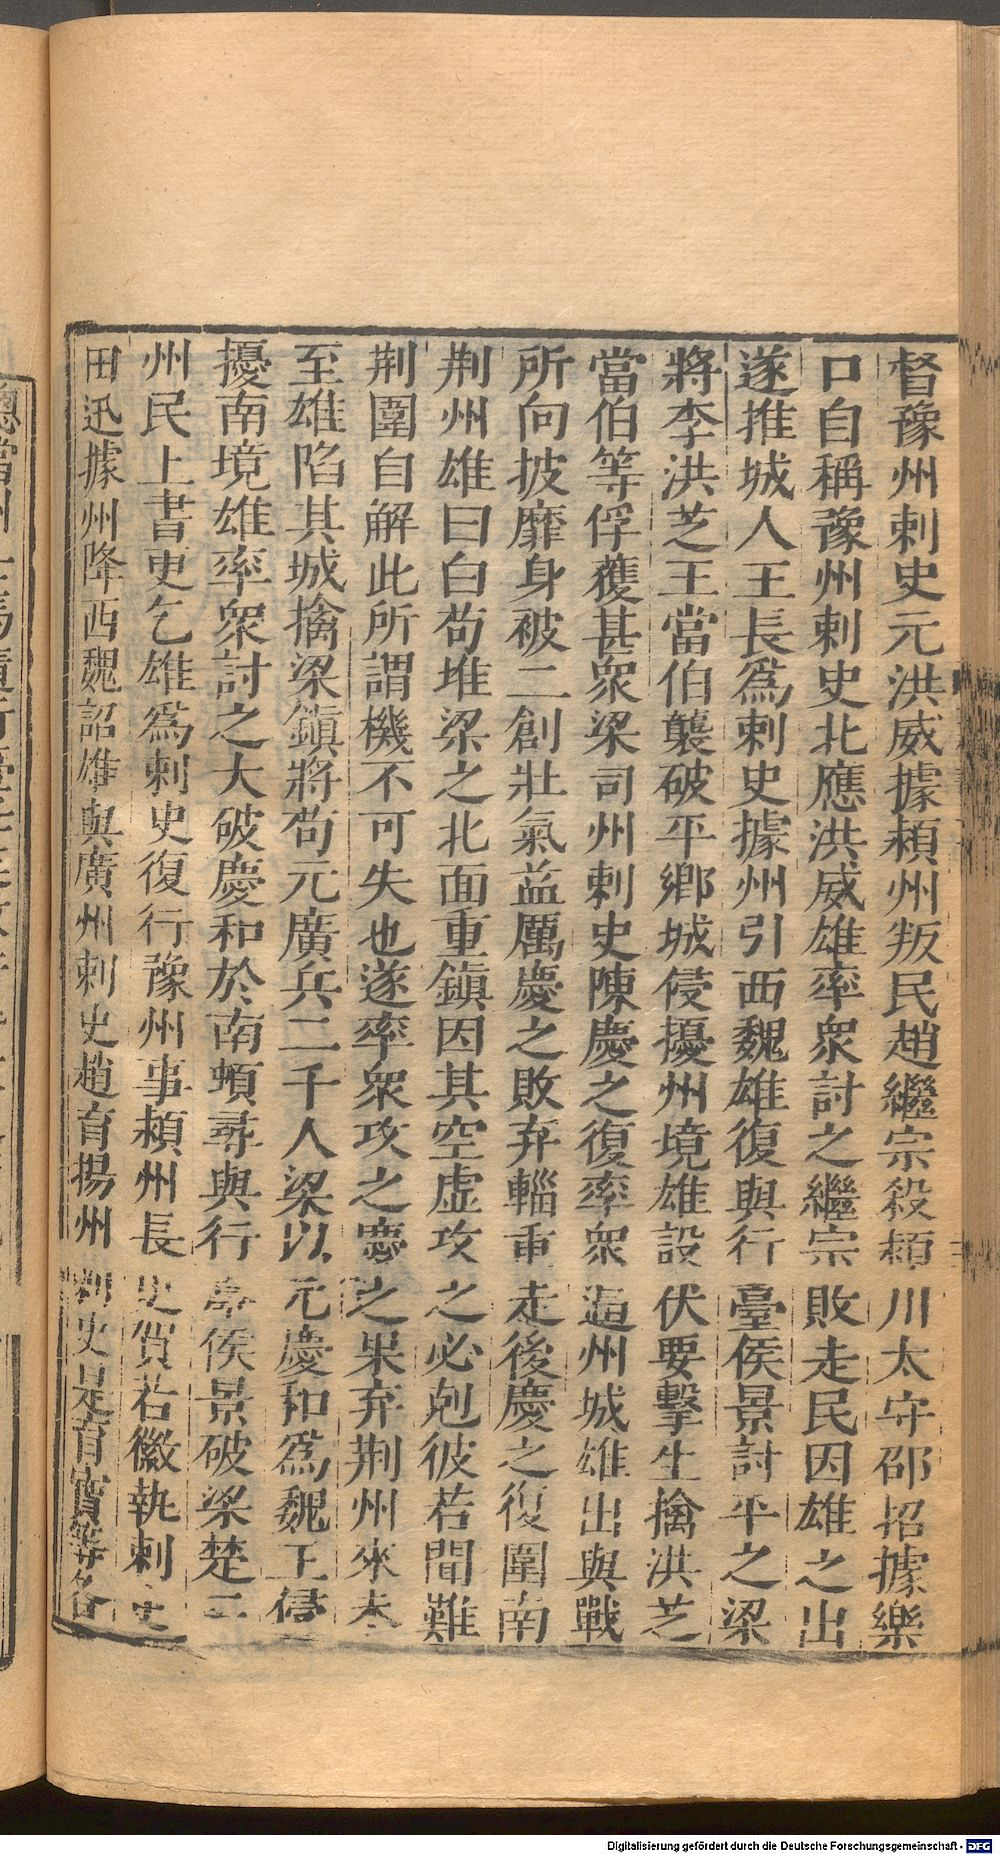 督豫州刺史元洪威據潁州叛民趙繼宗殺潁川太守邵招據樂
口自稱豫州刺史北應洪威雄率衆討之繼宗敗走民因雄之出
遂推城人王長爲刺史據州引西魏雄復與行臺侯景討平之梁
將李洪芝王當伯襲破平鄉城侵擾州境雄設伏要擊生擒洪芝
當伯等俘獲甚衆梁司州刺史陳慶之復率衆逼州城雄出與戰
所向披靡身被二創壯氣益厲慶之敗弃輜重走後慶之復圍南
荆州雄曰白苟堆梁之北面重鎮因其空虛攻之必剋彼若聞難
荆圍自解此所謂機不可失也遂率衆攻之慶之果弃荆州來未
至雄陷其城擒梁鎮將苟元廣兵二千人梁以元慶和爲魏王侵
擾南境雄率衆討之大破慶和於南頓尋與行臺侯景破梁楚
州民上書更乞雄爲刺史復行豫州事潁州長史賀若徽執刺史
田迅據州降西魏詔雄與廣州刺史趙育揚州刺史是育寶等各
Digitalisierung gefördert durch die Deutsche Forschungsgemeinschaft - DFG